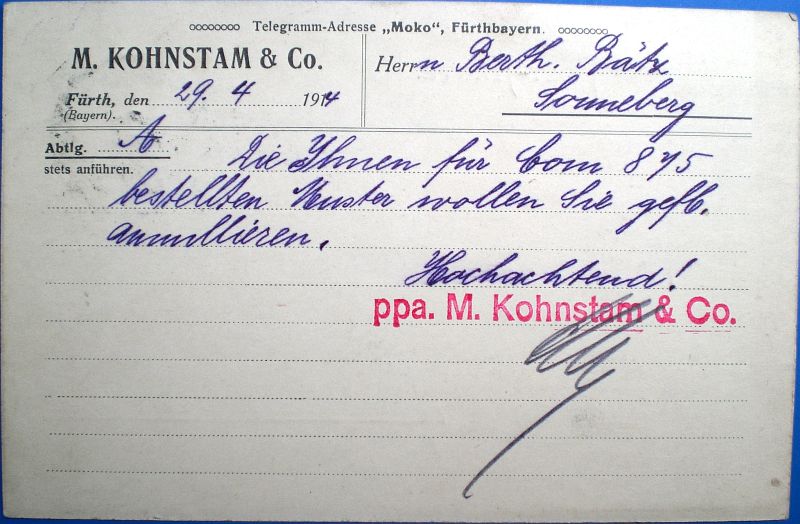 Telegramm-Adresse „Moko“, Fürthbayern.
M. KOHNSTAM & Co.
Fürth, den 29. 4 1914
(Bayern).
Herrn Berth. Bätz
Sonneberg
Abtlg. A
stets anführen.
Die Ihnen für Com 875
bestellten Muster wollen Sie gefl.
annullieren.
Hochachtend!
ppa. M. Kohnstam & Co.